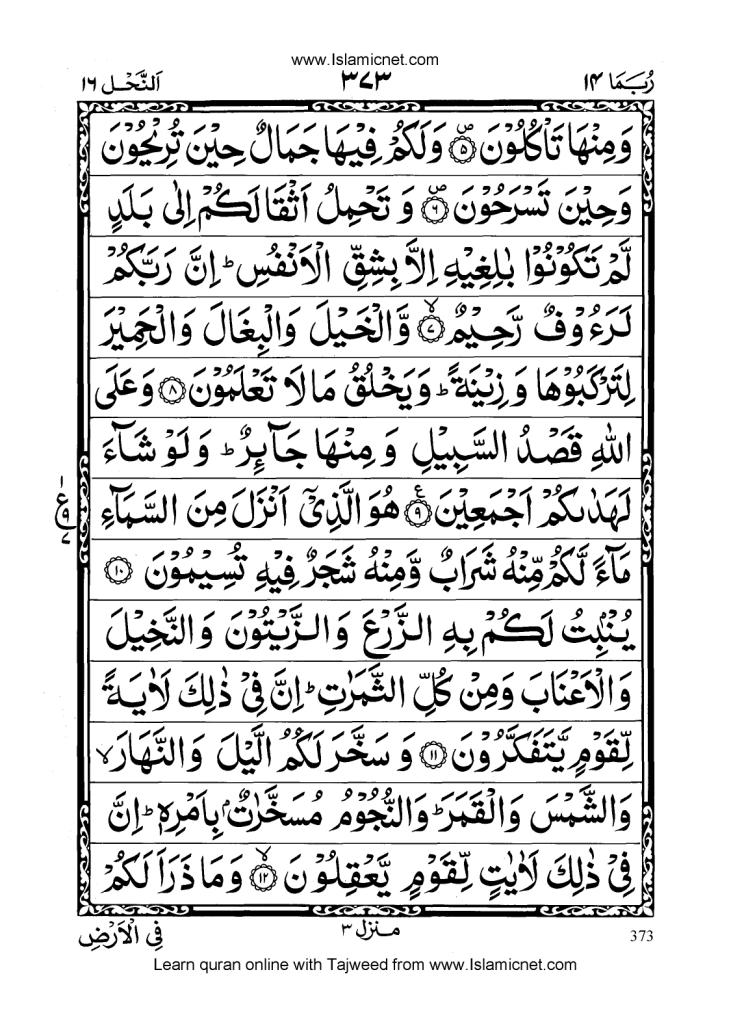 www.Islamicnet.com
رُبَمَا ١٤
٣٧٣
اَلنَّحْل ١٦
وَمِنْهَا تَاْكُلُوْنَ ۪۝۵ وَلَكُمْ فِيْهَا جَمَالٌ حِيْنَ تُرِيْحُوْنَ
وَحِيْنَ تَسْرَحُوْنَ ۪۝۶ وَ تَحْمِلُ اَثْقَالَكُمْ اِلٰى بَلَدٍ
لَّمْ تَكُوْنُوْا بٰلِغِيْهِ اِلَّا بِشِقِّ الْاَنْفُسِ ؕ اِنَّ رَبَّكُمْ
لَرَءُوْفٌ رَّحِيْمٌ ۙ۝۷ وَّالْخَيْلَ وَالْبِغَالَ وَالْحَمِيْرَ
لِتَرْكَبُوْهَا وَ زِيْنَةً ؕ وَيَخْلُقُ مَا لَا تَعْلَمُوْنَ ۝۸ وَعَلَى
اللّٰهِ قَصْدُ السَّبِيْلِ وَ مِنْهَا جَآىِٕرٌ ؕ وَ لَوْ شَآءَ
لَهَدٰىكُمْ اَجْمَعِيْنَ ۠۝۹ هُوَ الَّذِيْۤ اَنْزَلَ مِنَ السَّمَآءِ
مَآءً لَّكُمْ مِّنْهُ شَرَابٌ وَّمِنْهُ شَجَرٌ فِيْهِ تُسِيْمُوْنَ ۝۱۰
يُنْۢبِتُ لَكُمْ بِهِ الزَّرْعَ وَالزَّيْتُوْنَ وَالنَّخِيْلَ
وَالْاَعْنَابَ وَمِنْ كُلِّ الثَّمَرٰتِ ؕ اِنَّ فِيْ ذٰلِكَ لَاٰيَةً
لِّقَوْمٍ يَّتَفَكَّرُوْنَ ۝۱۱ وَ سَخَّرَ لَكُمُ الَّيْلَ وَالنَّهَارَ ۙ
وَالشَّمْسَ وَالْقَمَرَ ؕ وَالنُّجُوْمُ مُسَخَّرٰتٌۢ بِاَمْرِهٖ ؕ اِنَّ
فِيْ ذٰلِكَ لَاٰيٰتٍ لِّقَوْمٍ يَّعْقِلُوْنَ ۙ۝۱۲ وَمَا ذَرَاَ لَكُمْ
١
ع
٩
٧
فِي الْاَرْضِ
منزل ٣
373
Learn quran online with Tajweed from www.Islamicnet.com